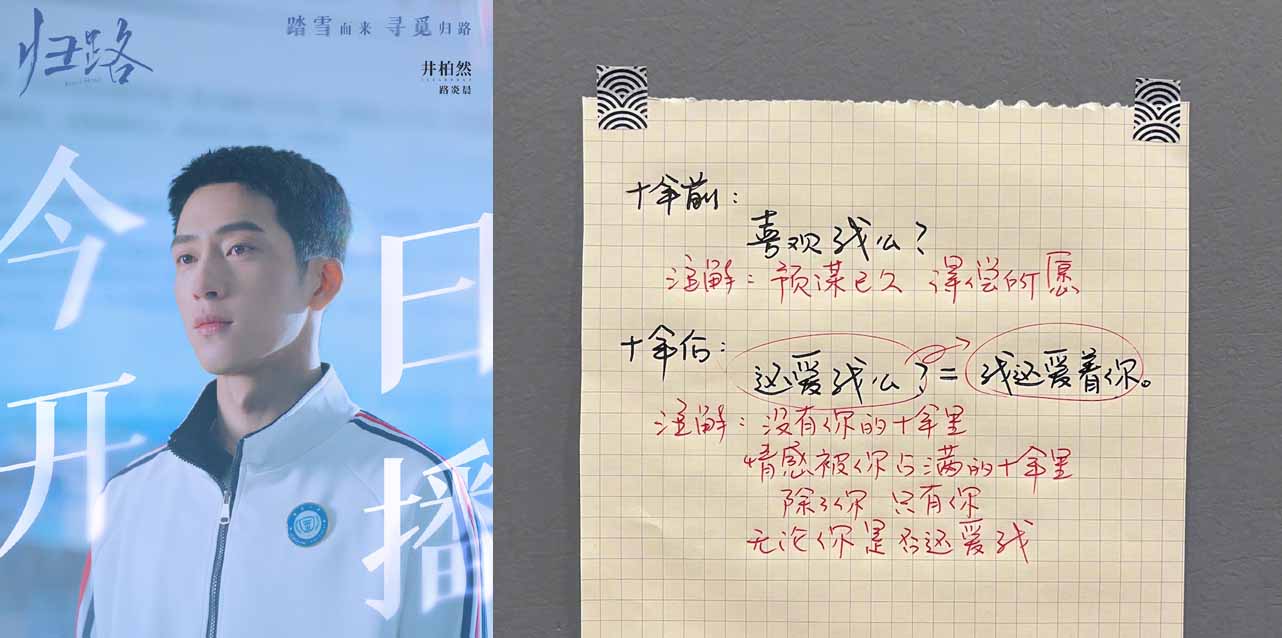 归路
踏雪而来 寻觅归路
井柏然
路炎晨
今日
开播
十年前:
喜观我么?
注解: 预谋已久 得偿所愿
十年后:
这爱我么? = 我还爱着你。
注解: 没有你的十年里
情感被你占满的十年里
除了你 只有你
无论你是否还爱我